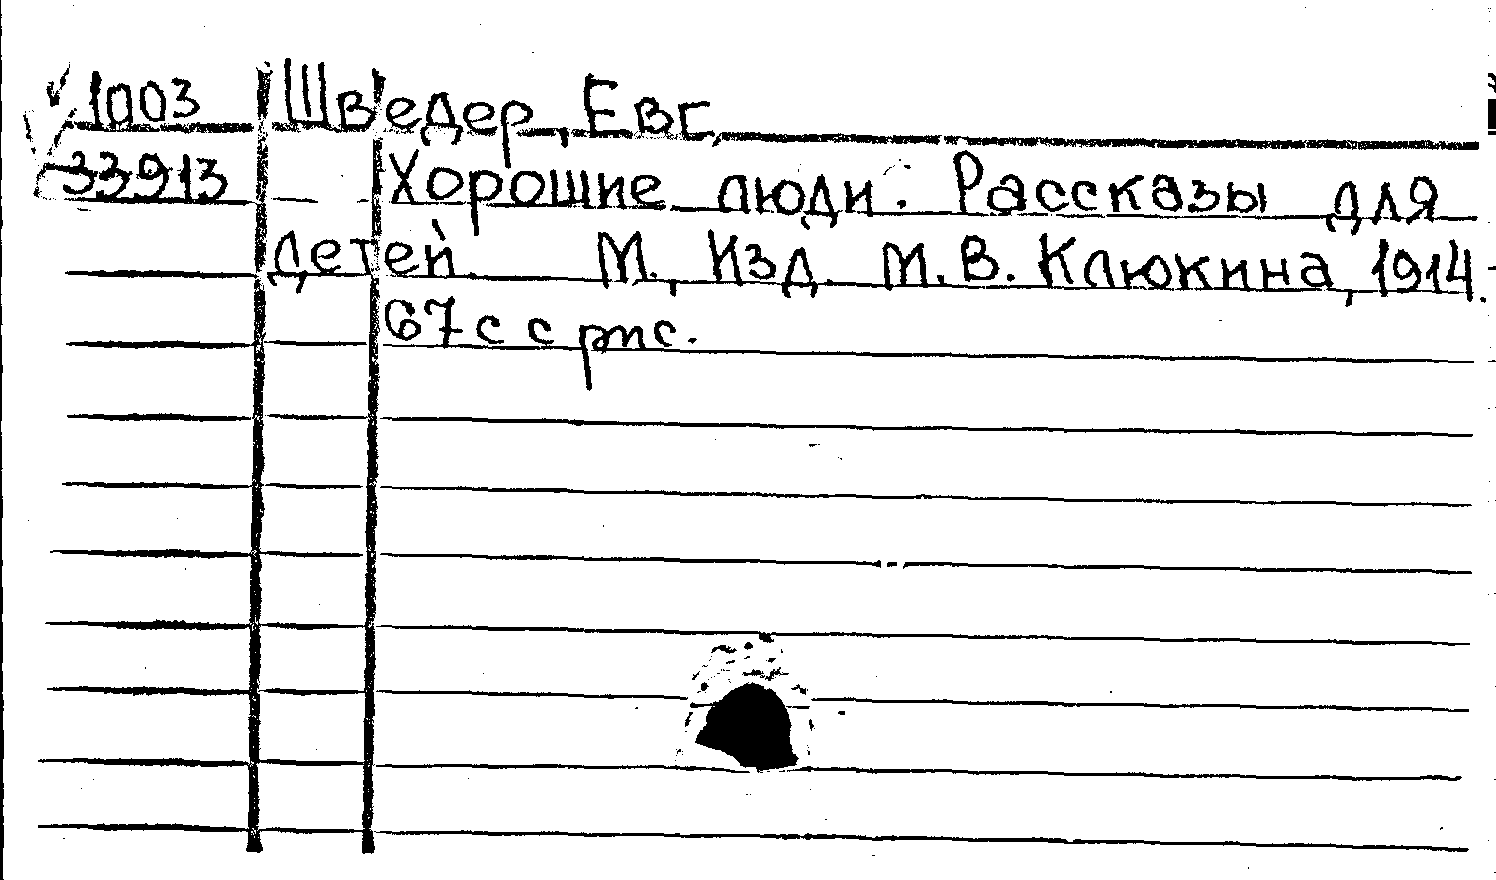 1003 Шведер, Евг.
33913 Хорошие люди. Рассказы для
детей М., Изд. М.В. Клюкина, 1914.
67 с с рис.